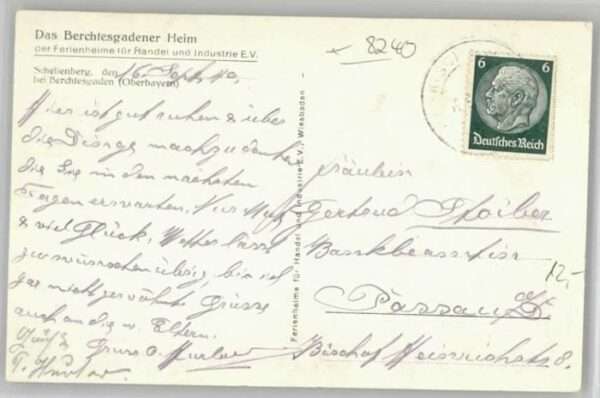 Das Berchtesgadener Heim
der Ferienheime für Handel und Industrie E.V.
Schellenberg, den 16. Sept. 40.
bei Berchtesgaden (Oberbayern)
8240
6 6
Deutsches Reich
Hier ist gut ruhen & über
die Dinge nachzudenken
die Sie in den nächsten
Tagen erwarten. Nur Mut
& viel Glück. Wetter lässt
zu wünschen übrig, bin
gar nicht verwöhnt Grüsse
auch an die w. Eltern.
Ferienheime für Handel und Industrie E.V., Wiesbaden
Fräulein
Gertrud
Bankbeamtin
12,-
Passau
Bischof Heinrichstr. 8.